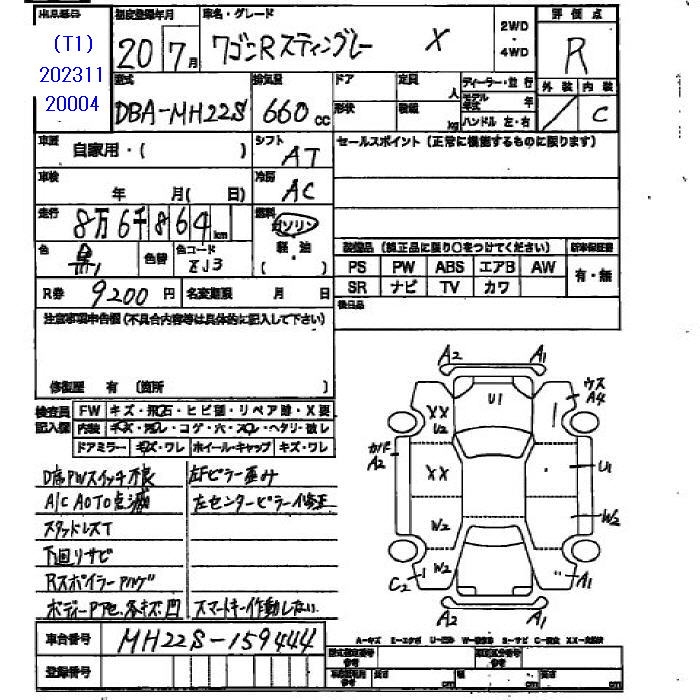 出品番号 初度登録年月 車名・グレード 2WD ・ 4WD 評価点
(T1) 202311 20004
20 7月 ワゴンRスティングレー X R
型式 排気量 ドア 定員 人 ディーラー・並 行 外装 内装
DBA-MH22S 660cc 形状 積載 kg モデル年式 年 ハンドル 左・右 / C
車歴 自家用・( ) シフト AT セールスポイント(正常に機能するものに限ります)
車検 年 月( 日) 冷房 AC
走行 8万6千864km 燃料 ガソリン 軽油 ( )
色 黒 色替 色コード ZJ3 装備品(純正品に限り○をつけてください) 新車保証書
PS PW ABS エアB AW 有・無
SR ナビ TV カワ
R券 9200円 名変期限 月 日 後日品
注意事項申告欄(不具合内容等は具体的に記入して下さい)
修復歴 有 (箇所 )
検査員記入欄 FW キズ・飛石・ヒビ割・リペア跡・X要
内装 キズ・汚レ・コゲ・穴・スレ・ヘタリ・破レ
ドアミラー キズ・ワレ ホイール・キャップ キズ・ワレ
D席PWスイッチ不良 左Fピラー歪み
A/C AUTO点滅 左センターピラー修正
スタッドレスT
下回りサビ
Rスポイラーハゲ
ボディー下色、各キズ凹 スマートキー作動しない
A2 A1
U1
XX U2
ウス A4
A2
XX
U1
W2
W2
W2
C2
A1
A2 A1
A-キズ E-エクボ U-凹 W-補修跡 S-サビ C-腐食 XX-交換済
車台番号 MH22S-159444
登録番号
型式指定番号 類別区分番号
長さ cm 幅 cm 高さ cm